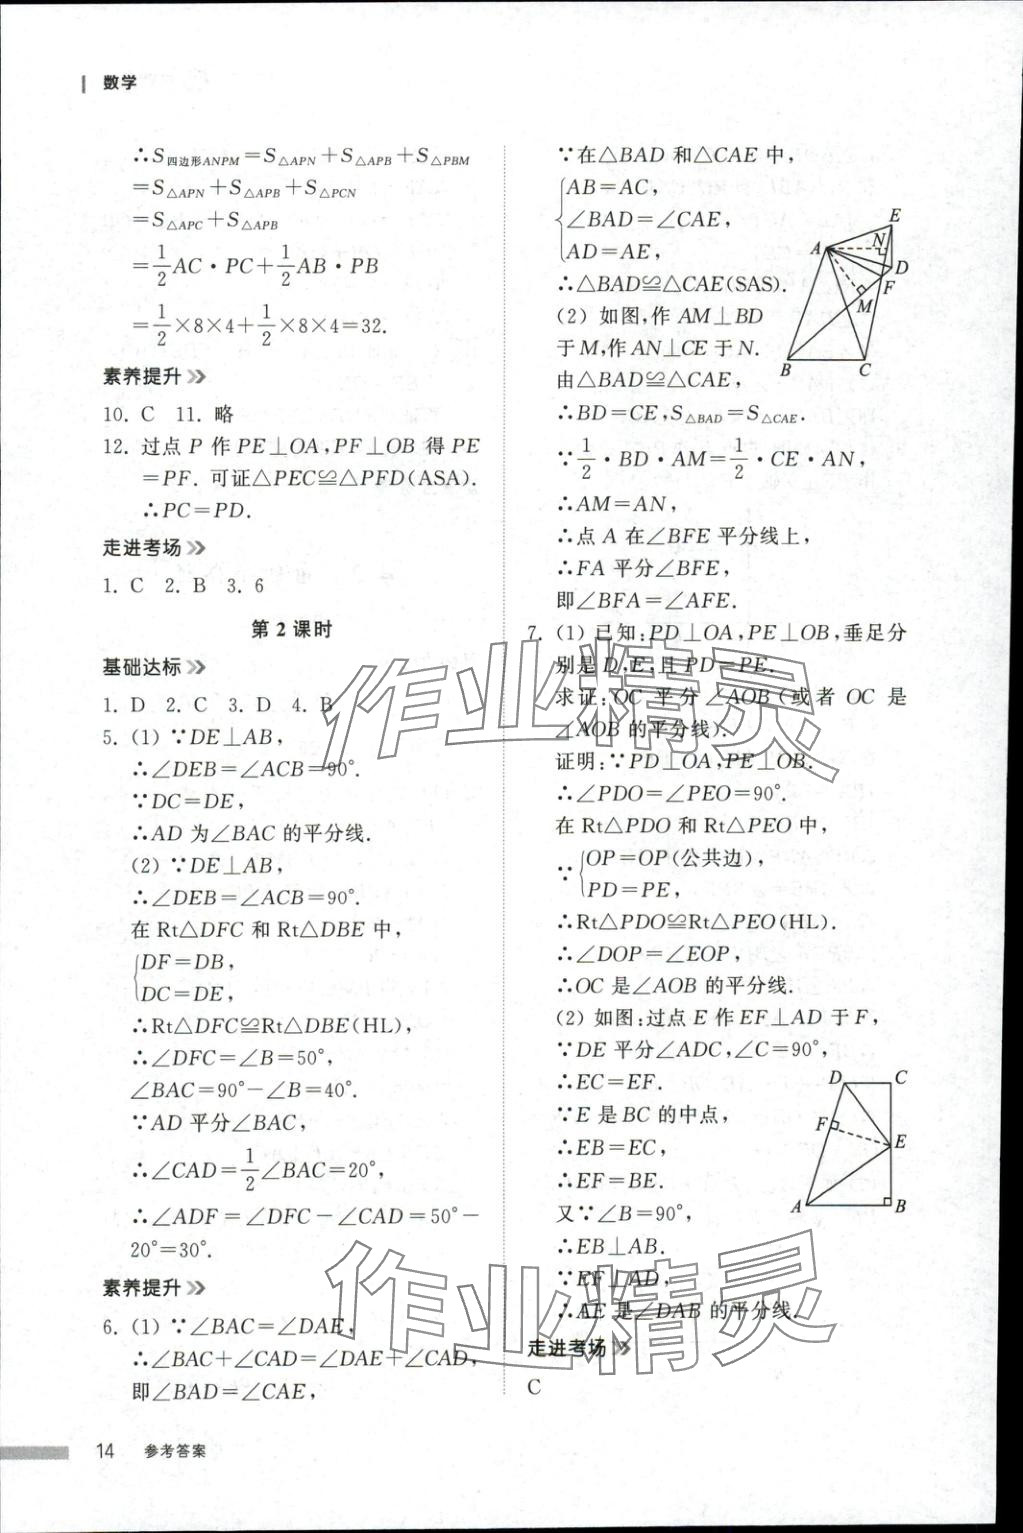 数学
∴S四边形ANPM=S△APN+S△APB+S△PBM
=S△APN+S△APB+S△PCN
=S△APC+S△APB
=1/2AC·PC+1/2AB·PB
=1/2×8×4+1/2×8×4=32.
素养提升
10. C 11. 略
12. 过点 P 作 PE⊥OA,PF⊥OB 得 PE
=PF. 可证△PEC≌△PFD(ASA).
∴PC=PD.
走进考场
1. C 2. B 3. 6
第 2 课时
基础达标
1. D 2. C 3. D 4. B
5. (1) ∵DE⊥AB,
∴∠DEB=∠ACB=90°.
∵DC=DE,
∴AD 为∠BAC 的平分线.
(2) ∵DE⊥AB,
∴∠DEB=∠ACB=90°.
在 Rt△DFC 和 Rt△DBE 中,
{DF=DB,
DC=DE,
∴Rt△DFC≌Rt△DBE(HL),
∴∠DFC=∠B=50°,
∠BAC=90°-∠B=40°.
∵AD 平分∠BAC,
∴∠CAD=1/2∠BAC=20°,
∴∠ADF=∠DFC-∠CAD=50°-
20°=30°.
素养提升
6. (1) ∵∠BAC=∠DAE,
∴∠BAC+∠CAD=∠DAE+∠CAD,
即∠BAD=∠CAE,
∵在△BAD 和△CAE 中,
{AB=AC,
∠BAD=∠CAE,
AD=AE,
∴△BAD≌△CAE(SAS).
(2) 如图,作 AM⊥BD
于 M,作 AN⊥CE 于 N.
由△BAD≌△CAE,
∴BD=CE,S△BAD=S△CAE.
∵1/2·BD·AM=1/2·CE·AN,
∴AM=AN,
∴点 A 在∠BFE 平分线上,
∴FA 平分∠BFE,
即∠BFA=∠AFE.
A
E
N
D
F
M
B
C
7. (1) 已知:PD⊥OA,PE⊥OB,垂足分
别是 D,E,且 PD=PE.
求证:OC 平分∠AOB(或者 OC 是
∠AOB 的平分线).
证明:∵PD⊥OA,PE⊥OB.
∴∠PDO=∠PEO=90°.
在 Rt△PDO 和 Rt△PEO 中,
∵{OP=OP(公共边),
PD=PE,
∴Rt△PDO≌Rt△PEO(HL).
∴∠DOP=∠EOP,
∴OC 是∠AOB 的平分线.
(2) 如图:过点 E 作 EF⊥AD 于 F,
∵DE 平分∠ADC,∠C=90°,
∴EC=EF.
∵E 是 BC 的中点,
∴EB=EC,
∴EF=BE.
又∵∠B=90°,
∴EB⊥AB.
∵EF⊥AD,
∴AE 是∠DAB 的平分线.
D
C
F
E
A
B
走进考场
C
作业精灵
作业精灵
14 参考答案